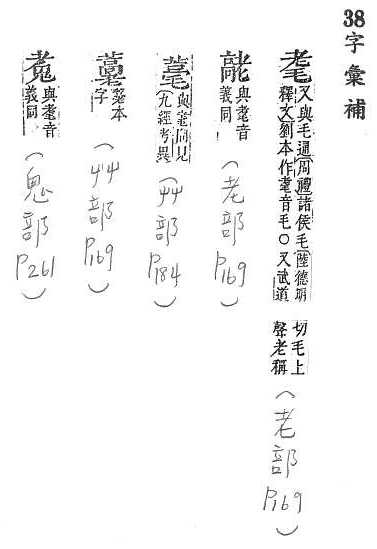 38字彙補
耄
又與毛通周禮諸侯毛陸德明
釋文劉本作耄音毛○又武道
切毛上
聲老稱
(老部P169)
與耄音
義同
(老部P169)
與耄同見
九經考異
(艸部P184)
本
字
(艸部P169)
與耄音
義同
(鬼部P261)